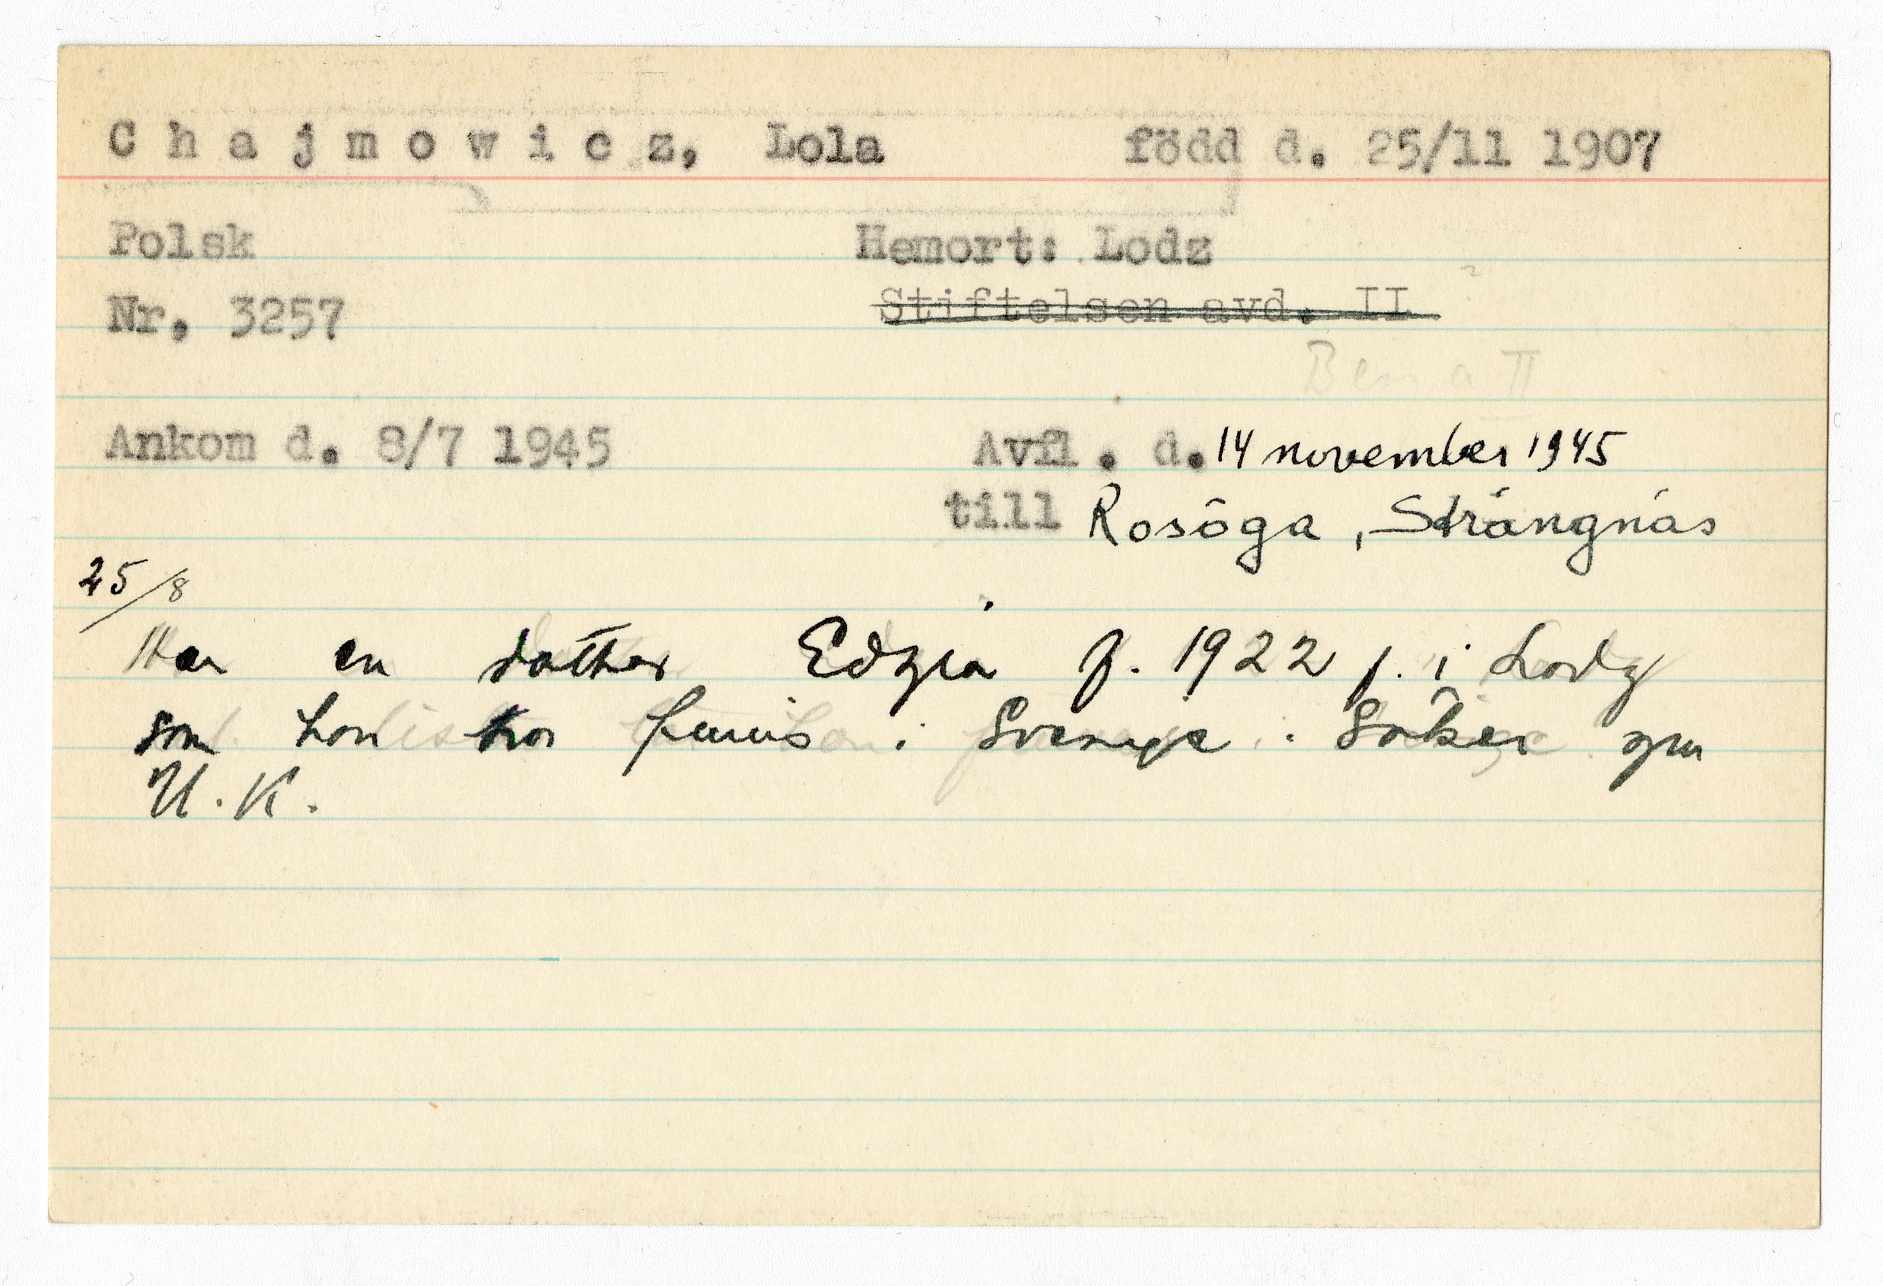 Chajmowicz, Lola född d. 25/11 1907
Polsk Hemort: Lodz
Nr, 3257 Stiftelsen avd. II
II
Ankom d. 8/7 1945 Avfl. d. 14 november 1945
till Rosöga, Strängnäs
25/8
Har en dotter Edzia f. 1922 f. i Lodz
som hon tror finnis i Sverige. Söker gm
U.K.